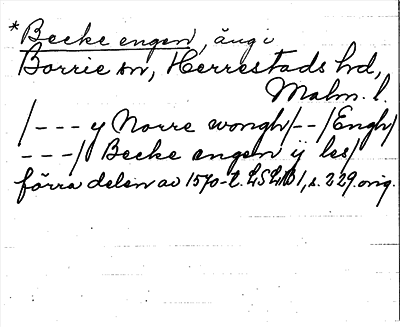 *Becke engen, äng i
Borrie sn, Herrestads hd,
Malm. l.
/--- y Norre wongh/--/Engh/
---/ Becke engen ij les/
förra delen av 1570-t. LSLJB 1, s. 229. orig.